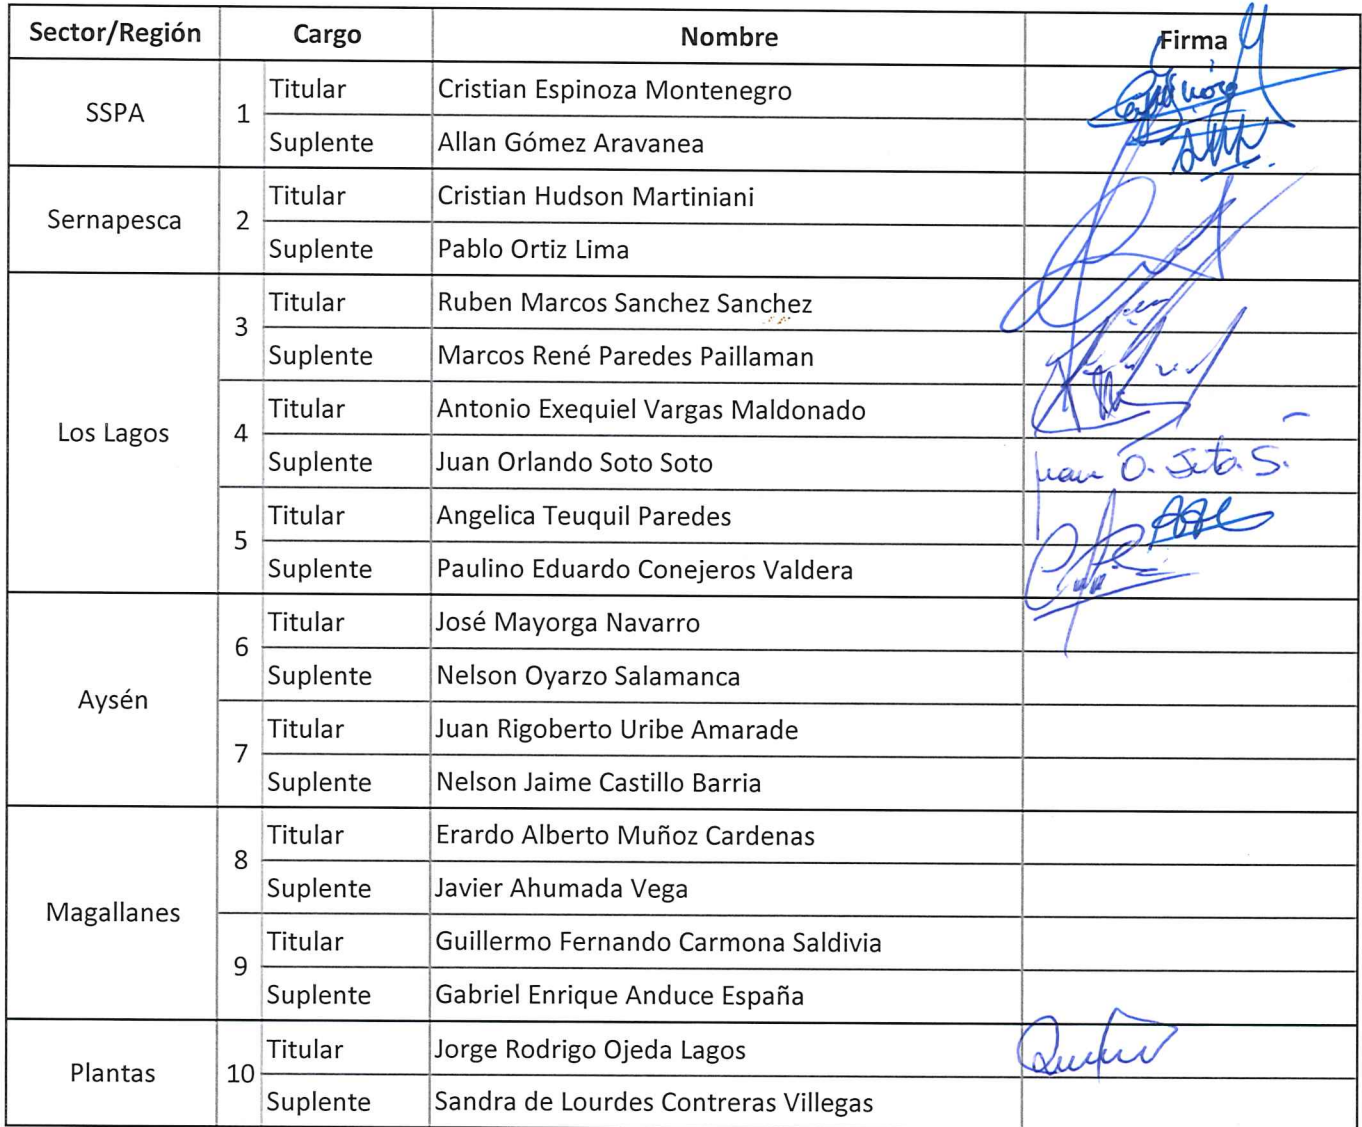 Sector/Región Cargo Nombre Firma
SSPA 1 Titular Cristian Espinoza Montenegro
Suplente Allan Gómez Aravanea
Sernapesca 2 Titular Cristian Hudson Martiniani
Suplente Pablo Ortiz Lima
Los Lagos 3 Titular Ruben Marcos Sanchez Sanchez
Suplente Marcos René Paredes Paillaman
4 Titular Antonio Exequiel Vargas Maldonado
Suplente Juan Orlando Soto Soto Juan O. Soto S.
5 Titular Angelica Teuquil Paredes
Suplente Paulino Eduardo Conejeros Valdera
Aysén 6 Titular José Mayorga Navarro
Suplente Nelson Oyarzo Salamanca
7 Titular Juan Rigoberto Uribe Amarade
Suplente Nelson Jaime Castillo Barria
Magallanes 8 Titular Erardo Alberto Muñoz Cardenas
Suplente Javier Ahumada Vega
9 Titular Guillermo Fernando Carmona Saldivia
Suplente Gabriel Enrique Anduce España
Plantas 10 Titular Jorge Rodrigo Ojeda Lagos
Suplente Sandra de Lourdes Contreras Villegas